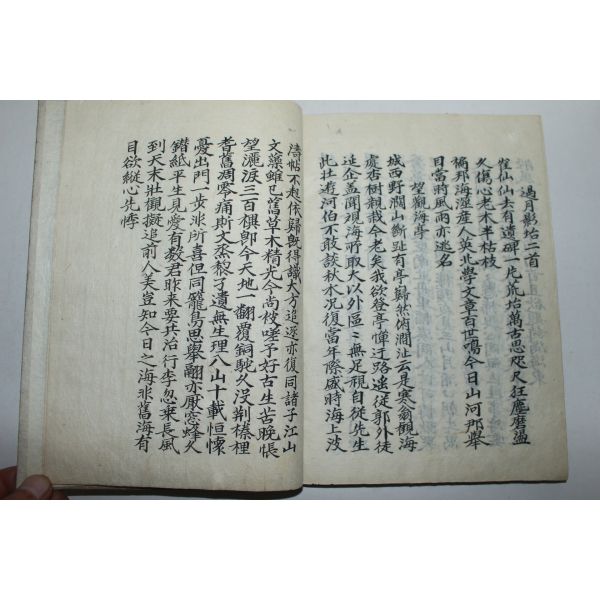 過月影坮二首
崔仙仙去有遺碑一片荒坮萬古思咫尺狂塵磨盪
久傷心老木半枯枝
橘邦海澨産人英北學文章百世鳴今日山河那擧
目當時風雨亦逃名
望觀海亭
城西野濶山斷趾有亭巋然俯澗沚云是寒翁觀海
處杏樹親栽今老矣我欲登亭憚迂路遙從郭外徒
延企盖聞觀海所取大以外區〻無足視自從先生
託壯遊河伯不敢談秋水况復當年際感時海上波
濤帖不起依歸旣得議大方追逐亦復同諸子江山
文藻雖已舊草木精光今尚枝嗟予好古生苦晚悵
望灑淚三百禩卽今天地一翻覆銅駝久沒荆榛裡
耆舊凋零痛斯文烝黎孑遺無生理八山十載恒懷
憂出門一步非所喜但同籠鳥思擧翮亦厭窓蜂久
鑽紙平生見愛有數君昨來要共治行李忽乘長風
到天末壯觀擬追前人美豈知今日之海非舊海有
目欲縱心先悸